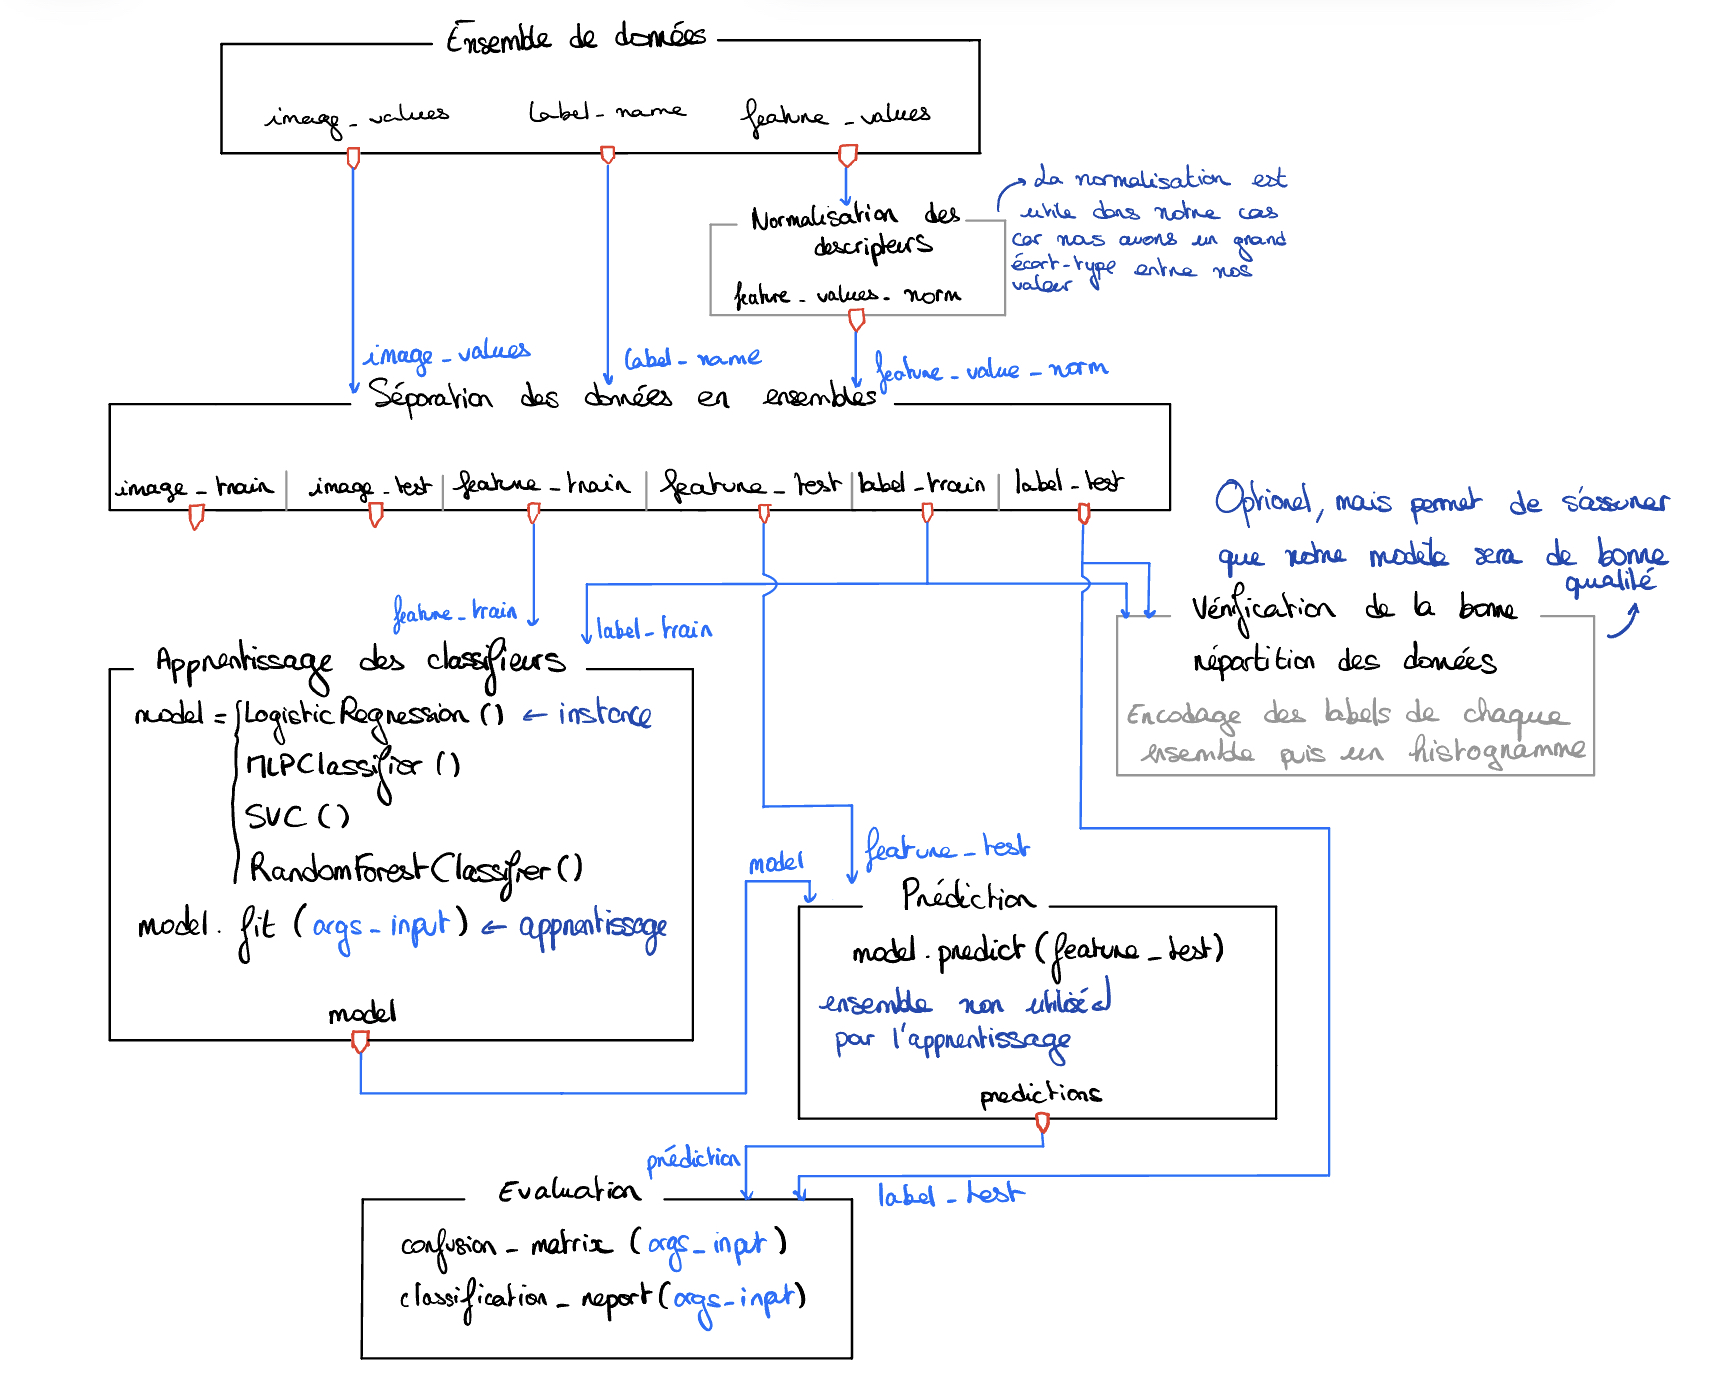 Ensemble de données
image_values label_name feature_values
Normalisation des
descripteurs
feature_values_norm
La normalisation est
utile dans notre cas
car nous avons un grand
écart-type entre nos
valeur
image_values
label_name
feature_value_norm
Séparation des données en ensembles
image_train image_test feature_train feature_test label_train label_test
Optionel, mais permet de s'assurer
que notre modèle sera de bonne
qualité
feature_train
label_train
Vérification de la bonne
répartition des données
Encodage des labels de chaque
ensemble puis un histogramme
Apprentissage des classifieurs
model = LogisticRegression () ← instance
MLPClassifier ()
SVC ()
RandomForestClassifier ()
model.fit (args_input) ← apprentissage
model
model
feature_test
Prédiction
model.predict (feature_test)
ensemble non utilisé
par l'apprentissage
predictions
prédiction
label_test
Evaluation
confusion_matrix (args_input)
classification_report (args_input)